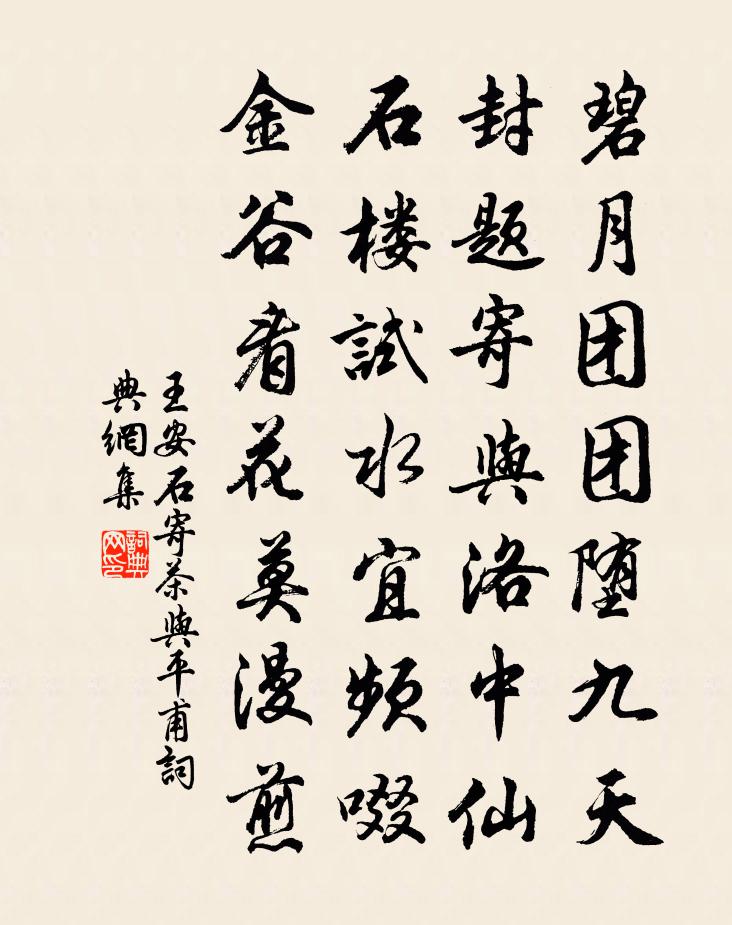 碧月团团堕九天
封题寄與洛中仙
石楼試水宜频啜
金谷看花莫漫煎
王安石寄茶與平甫詞
典網集
詞典网印